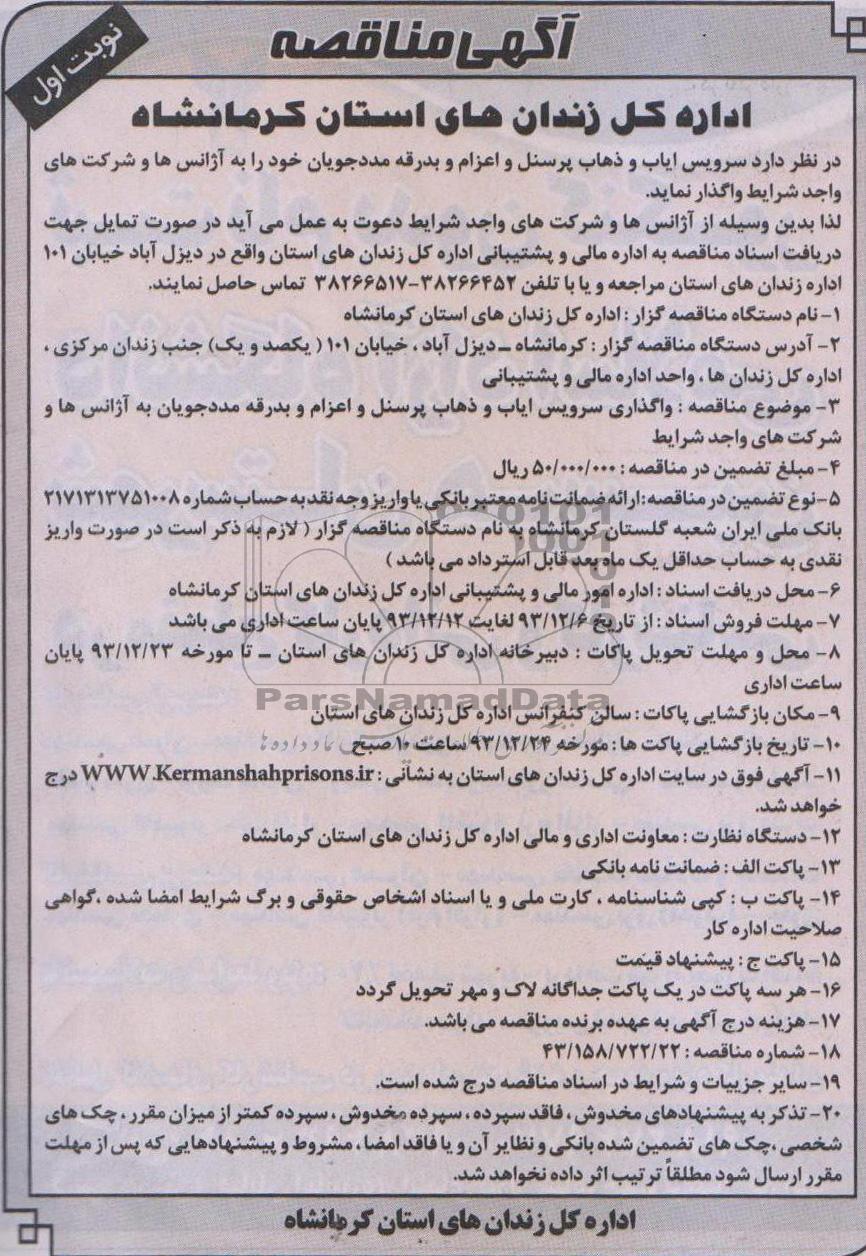 آگهی مناقصه
نوبت اول
اداره کل زندان های استان کرمانشاه
در نظر دارد سرویس ایاب و ذهاب پرسنل و اعزام و بدرقه مددجویان خود را به آژانس ها و شرکت های
واجد شرایط واگذار نماید.
لذا بدین وسیله از آژانس ها و شرکت های واجد شرایط دعوت به عمل می آید در صورت تمایل جهت
دریافت اسناد مناقصه به اداره مالی و پشتیبانی اداره کل زندان های استان واقع در دیزل آباد خیابان ۱۰۱
اداره زندان های استان مراجعه و یا با تلفن ۳۸۲۶۶۴۵۲-۳۸۲۶۶۵۱۷ تماس حاصل نمایند.
۱- نام دستگاه مناقصه گزار : اداره کل زندان های استان کرمانشاه
۲- آدرس دستگاه مناقصه گزار : کرمانشاه ـ دیزل آباد ، خیابان ۱۰۱ ( یکصد و یک) جنب زندان مرکزی ،
اداره کل زندان ها ، واحد اداره مالی و پشتیبانی
۳- موضوع مناقصه : واگذاری سرویس ایاب و ذهاب پرسنل و اعزام و بدرقه مددجویان به آژانس ها و
شرکت های واجد شرایط
۴- مبلغ تضمین در مناقصه : ۵۰/۰۰۰/۰۰۰ ریال
۵- نوع تضمین در مناقصه: ارائه ضمانت نامه معتبر بانکی یا واریز وجه نقد به حساب شماره ۲۱۷۱۳۱۳۷۵۱۰۰۸
بانک ملی ایران شعبه گلستان کرمانشاه به نام دستگاه مناقصه گزار ( لازم به ذکر است در صورت واریز
نقدی به حساب حداقل یک ماه بعد قابل استرداد می باشد )
۶- محل دریافت اسناد : اداره امور مالی و پشتیبانی اداره کل زندان های استان کرمانشاه
۷- مهلت فروش اسناد : از تاریخ ۹۳/۱۲/۶ لغایت ۹۳/۱۲/۱۲ پایان ساعت اداری می باشد
۸- محل و مهلت تحویل پاکات : دبیرخانه اداره کل زندان های استان ـ تا مورخه ۹۳/۱۲/۲۳ پایان
ساعت اداری
ParsNamadData
۹- مکان بازگشایی پاکات : سالن کنفرانس اداره کل زندان های استان
۱۰- تاریخ بازگشایی پاکت ها : مورخه ۹۳/۱۲/۲۴ ساعت ۱۰ صبح
۱۱- آگهی فوق در سایت اداره کل زندان های استان به نشانی : WWW.Kermanshahprisons.ir درج
خواهد شد.
۱۲- دستگاه نظارت : معاونت اداری و مالی اداره کل زندان های استان کرمانشاه
۱۳- پاکت الف : ضمانت نامه بانکی
۱۴- پاکت ب : کپی شناسنامه ، کارت ملی و یا اسناد اشخاص حقوقی و برگ شرایط امضا شده ،گواهی
صلاحیت اداره کار
۱۵- پاکت ج : پیشنهاد قیمت
۱۶- هر سه پاکت در یک پاکت جداگانه لاک و مهر تحویل گردد
۱۷- هزینه درج آگهی به عهده برنده مناقصه می باشد.
۱۸- شماره مناقصه : ۴۳/۱۵۸/۷۲۲/۲۲
۱۹- سایر جزییات و شرایط در اسناد مناقصه درج شده است.
۲۰- تذکر به پیشنهادهای مخدوش ، فاقد سپرده ، سپرده مخدوش ، سپرده کمتر از میزان مقرر ، چک های
شخصی ،چک های تضمین شده بانکی و نظایر آن و یا فاقد امضا ، مشروط و پیشنهادهایی که پس از مهلت
مقرر ارسال شود مطلقاً ترتیب اثر داده نخواهد شد.
اداره کل زندان های استان کرمانشاه